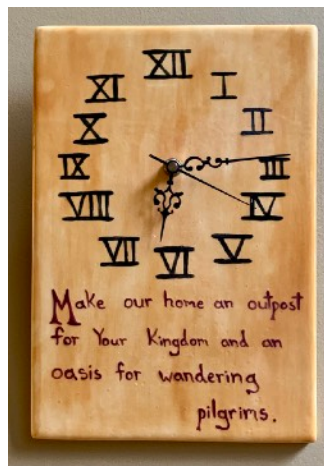 XII
XI I
X II
IX III
VIII IV
VII VI V
Make our home an outpost
for Your Kingdom and an
oasis for wandering
pilgrims.